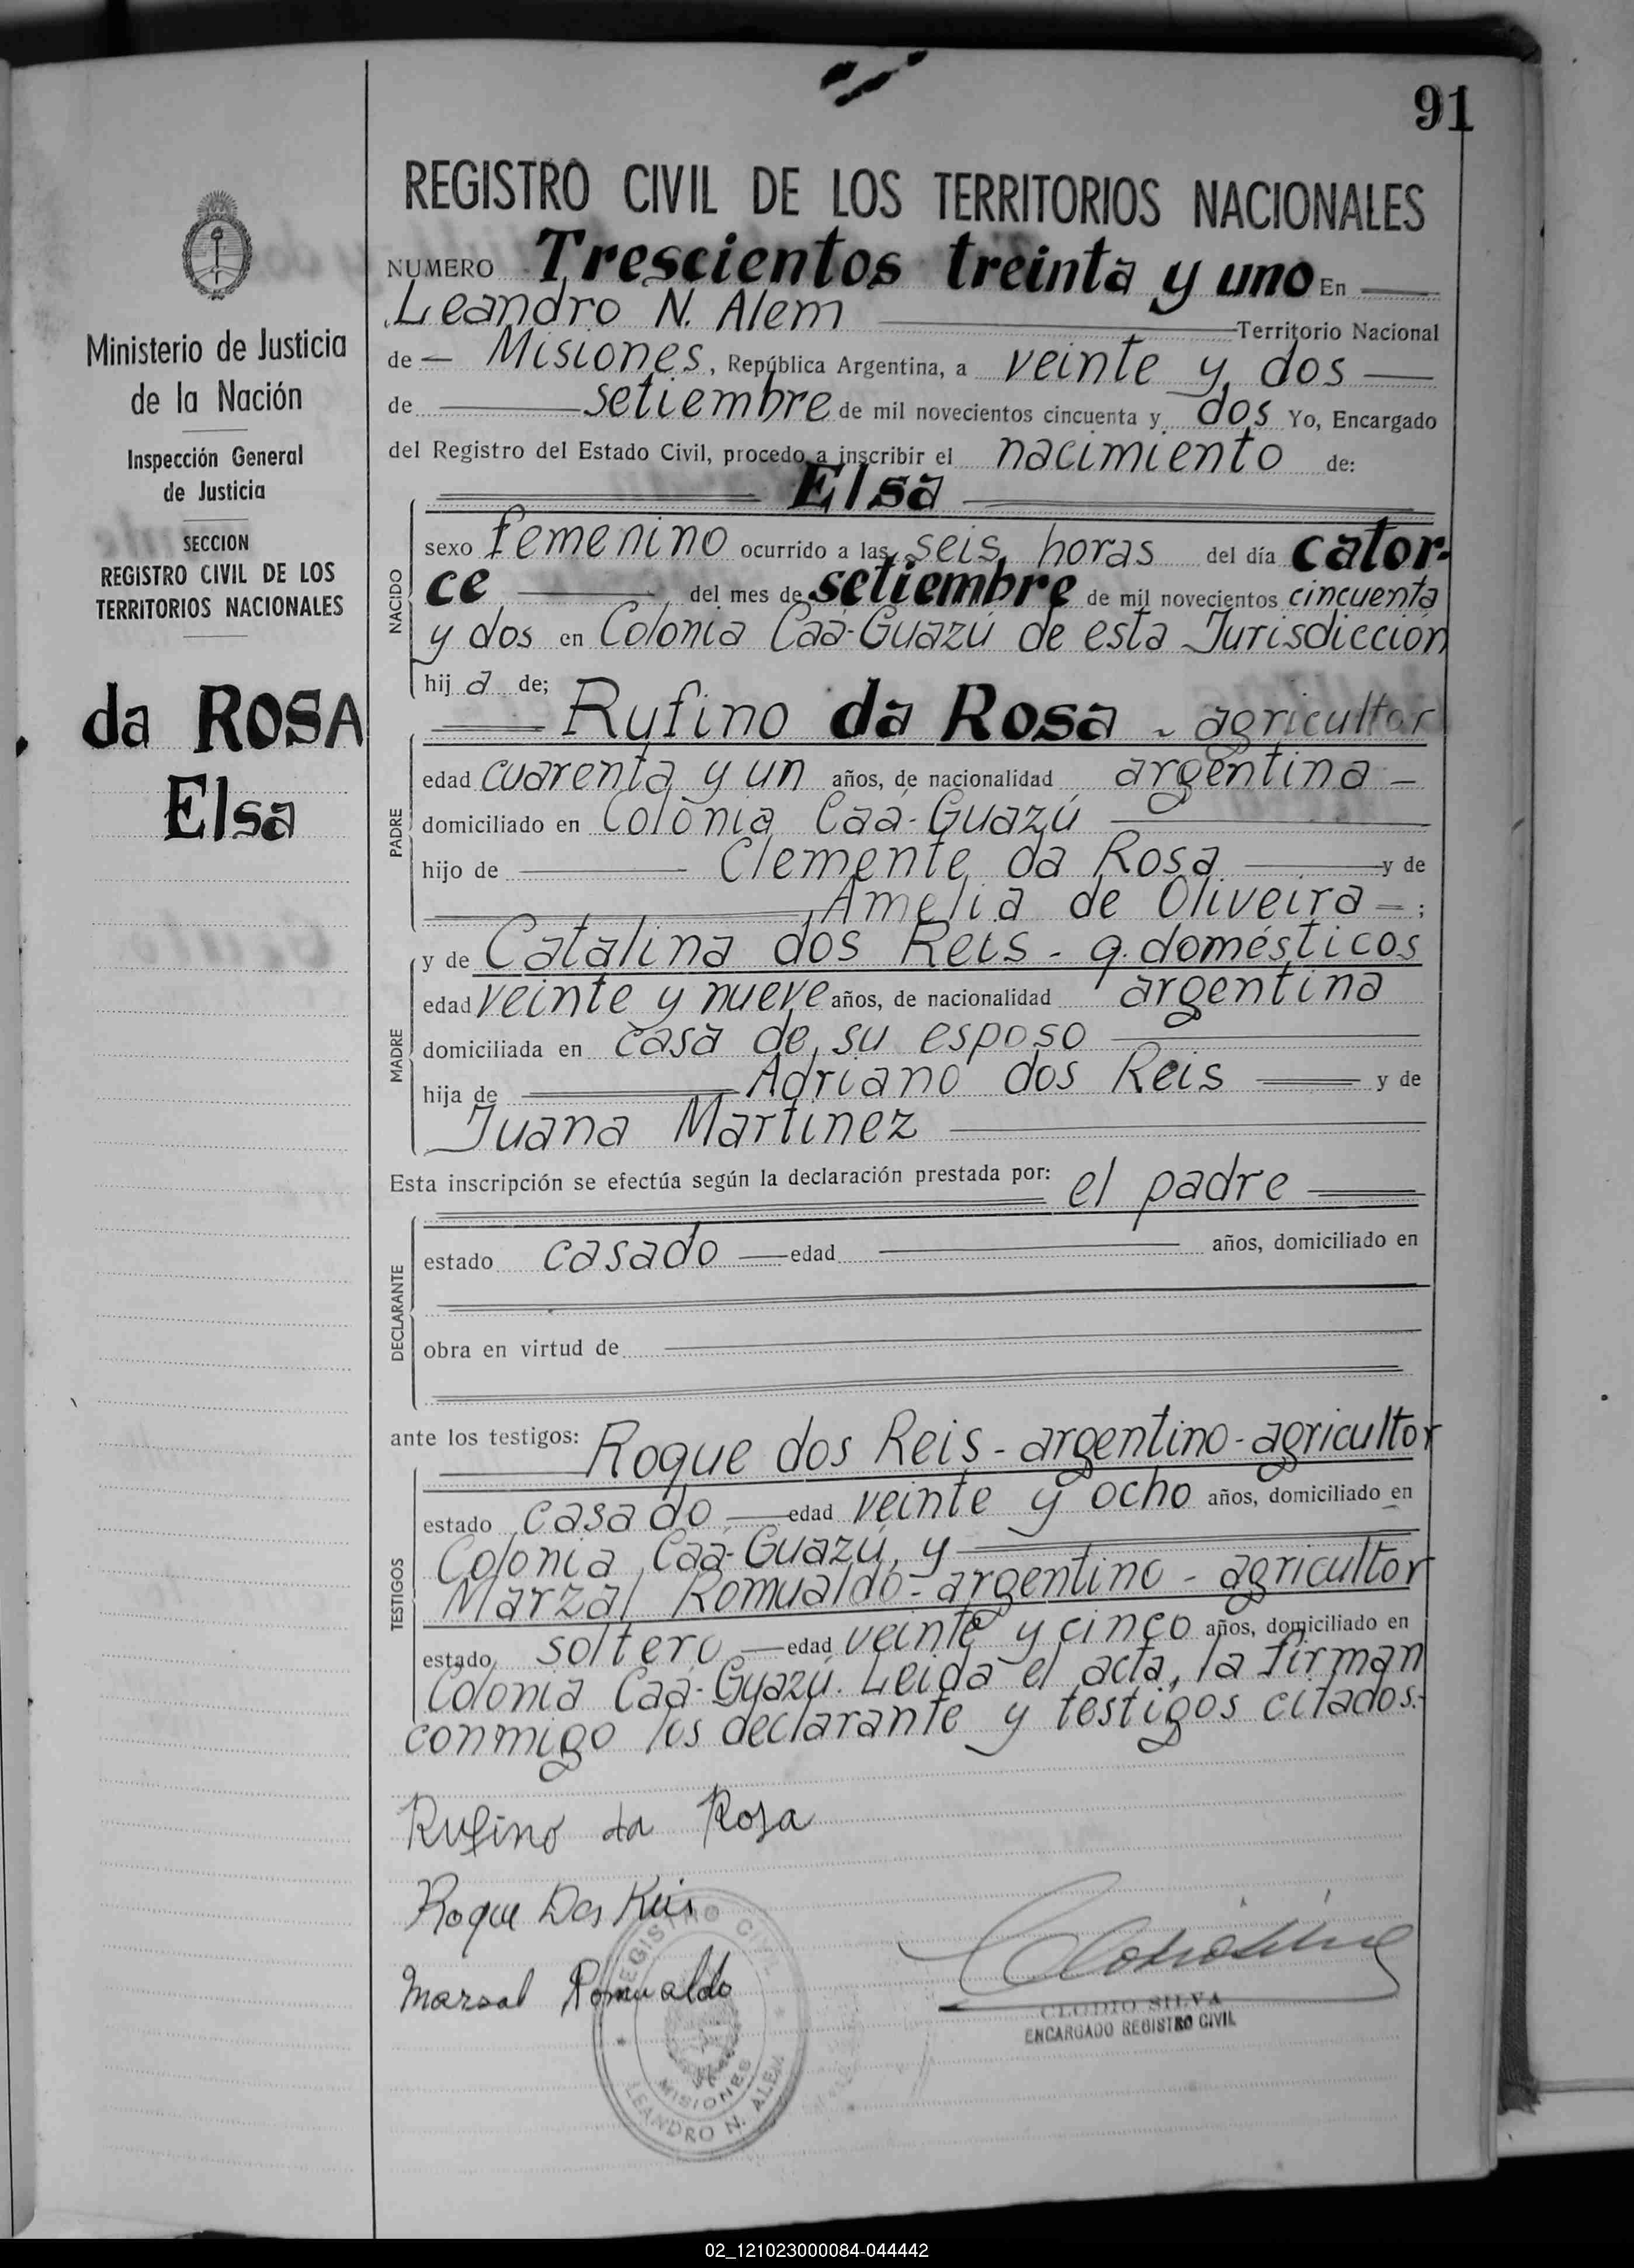 91
REGISTRO CIVIL DE LOS TERRITORIOS NACIONALES
NUMERO Trescientos treinta y uno En
Leandro N. Alem Territorio Nacional
de Misiones, República Argentina, a veinte y dos
de setiembre de mil novecientos cincuenta y dos Yo, Encargado
del Registro del Estado Civil, procedo a inscribir el nacimiento de:
Elsa
NACIDO
sexo femenino ocurrido a las seis horas del día cator-
ce del mes de setiembre de mil novecientos cincuenta
y dos en Colonia Caá-Guazú de esta Jurisdicción
hija de;
Rufino da Rosa - agricultor
PADRE
edad cuarenta y un años, de nacionalidad argentina
domiciliado en Colonia Caá-Guazú
hijo de Clemente da Rosa y de
Amelia de Oliveira ;
MADRE
y de Catalina dos Reis - q. domésticos
edad veinte y nueve años, de nacionalidad argentina
domiciliada en casa de su esposo
hija de Adriano dos Reis y de
Juana Martinez
Esta inscripción se efectúa según la declaración prestada por: el padre
DECLARANTE
estado casado edad años, domiciliado en
obra en virtud de
ante los testigos: Roque dos Reis - argentino - agricultor
TESTIGOS
estado casado edad veinte y ocho años, domiciliado en
Colonia Caá-Guazú, y
Marzal Romualdo - argentino - agricultor
estado soltero edad veinte y cinco años, domiciliado en
Colonia Caá-Guazú. Leida el acta, la firman
conmigo los declarante y testigos citados.-
Rufino da Rosa
Roque Dos Reis
Marsal Romualdo
REGISTRO CIVIL
MISIONES
LEANDRO N. ALEM
CLUDIO SILVA
ENCARGADO REGISTRO CIVIL
Ministerio de Justicia
de la Nación
Inspección General
de Justicia
SECCION
REGISTRO CIVIL DE LOS
TERRITORIOS NACIONALES
da ROSA
Elsa
02_121023000084-044442